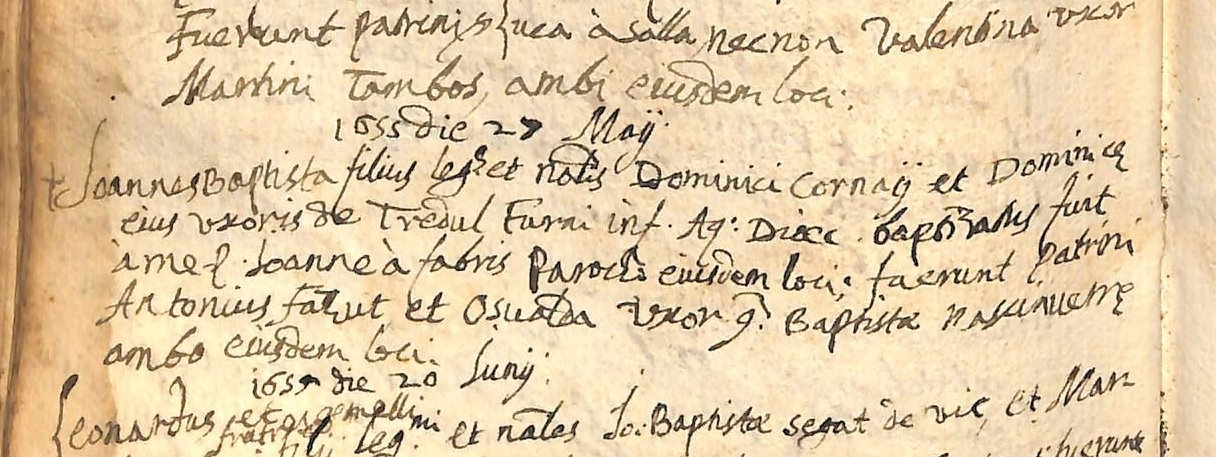 Fuerunt patrinis Luca à Salla, necnon Valentina uxor
Martini Tambos, ambi eiusdem loci.
1655 die 27 Maij
+ Joannes Baptista filius leg.s et nâlis Dominici Cornaij et Dominicę
eius uxoris de Tredul Furni inf. Aq: Dioec. baptizatus fuit
à me P. Joanne à fabris Paroch: eiusdem loci; fuerunt Patrini
Antonius fazut et Osualda uxor q. Baptistæ
ambo eiusdem loci.
165 die 20 Junij.
Leonardus et gemelli
fratres fil leg. et nâles Jo: Baptistæ segat de vic, et Mar
fuerunt